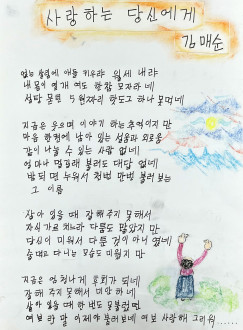 사랑하는 당신에게
김매순
없는 살림에 애들 키우랴 월세 내랴
내 몸이 열개 여도 한참 모자라 네
지금은 웃으며 이야기 하는 추억이지 만
마음 한편에 남아 있는 설움과 외로움
같이 나눌 수 있는 사람 없네
얼마나 불러도 대답 없네
밤되면 누워서 천번 만번 불러 보는
그 이름
살아 있을 때 잘해주지 못해서
자식 가르치느라 다툼도 많았지 만
당신이 미워서 다툰 것이 아니 였네
술 먹고 다니는 모습도 미웠지 만
지금은 엄청나게 후회가 되네
잘해 주지 못해서 미안 하네
살아 있을 때 한번도 못불렀던
여보 라 말 이제야 불러보네 여보 사랑해 그리워......